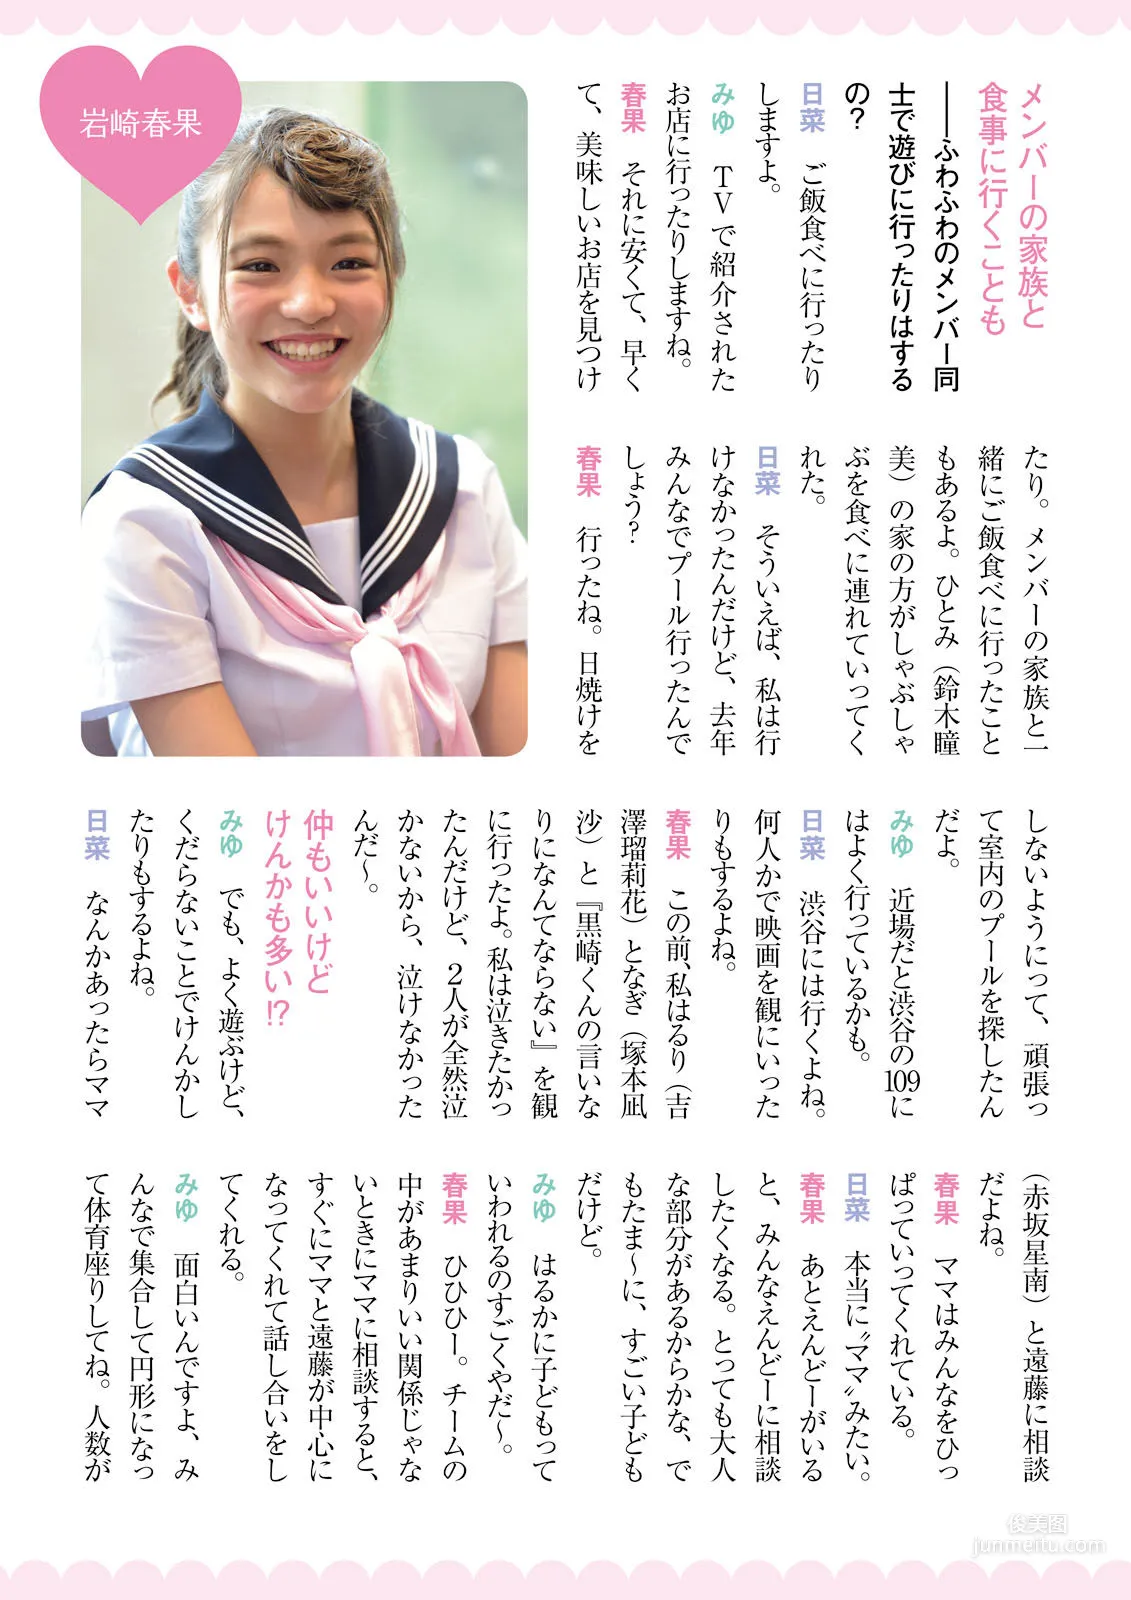 岩崎春果
メンバーの家族と
食事に行くことも
――ふわふわのメンバー同
士で遊びに行ったりはする
の?
日菜 ご飯食べに行ったり
しますよ。
みゆ TVで紹介された
お店に行ったりしますね。
春果 それに安くて、早く
て、美味しいお店を見つけ
たり。メンバーの家族と一
緒にご飯食べに行ったこと
もあるよ。ひとみ(鈴木瞳
美)の家の方がしゃぶしゃ
ぶを食べに連れていってく
れた。
日菜 そういえば、私は行
けなかったんだけど、去年
みんなでプール行ったんで
しょう?
春果 行ったね。日焼けを
しないようにって、頑張っ
て室内のプールを探したん
だよ。
みゆ 近場だと渋谷の109に
はよく行っているかも。
日菜 渋谷には行くよね。
何人かで映画を観にいった
りもするよね。
春果 この前、私はるり(吉
澤瑠莉花)となぎ(塚本凪
沙)と『黒崎くんの言いな
りになんてならない』を観
に行ったよ。私は泣きたかっ
たんだけど、2人が全然泣
かないから、泣けなかった
んだ〜。
仲もいいけど
けんかも多い!?
みゆ でも、よく遊ぶけど、
くだらないことでけんかし
たりもするよね。
日菜 なんかあったらママ
(赤坂星南)と遠藤に相談
だよね。
春果 ママはみんなをひっ
ぱっていってくれている。
日菜 本当に〝ママ〟みたい。
春果 あとえんどーがいる
と、みんなえんどーに相談
したくなる。とっても大人
な部分があるからかな、で
もたま〜に、すごい子ども
だけど。
みゆ はるかに子どもって
いわれるのすごくやだ〜。
春果 ひひひー。チームの
中があまりいい関係じゃな
いときにママに相談すると、
すぐにママと遠藤が中心に
なってくれて話し合いをし
てくれる。
みゆ 面白いんですよ、み
んなで集合して円形になっ
て体育座りしてね。人数が
俊美图
junmeitu.com